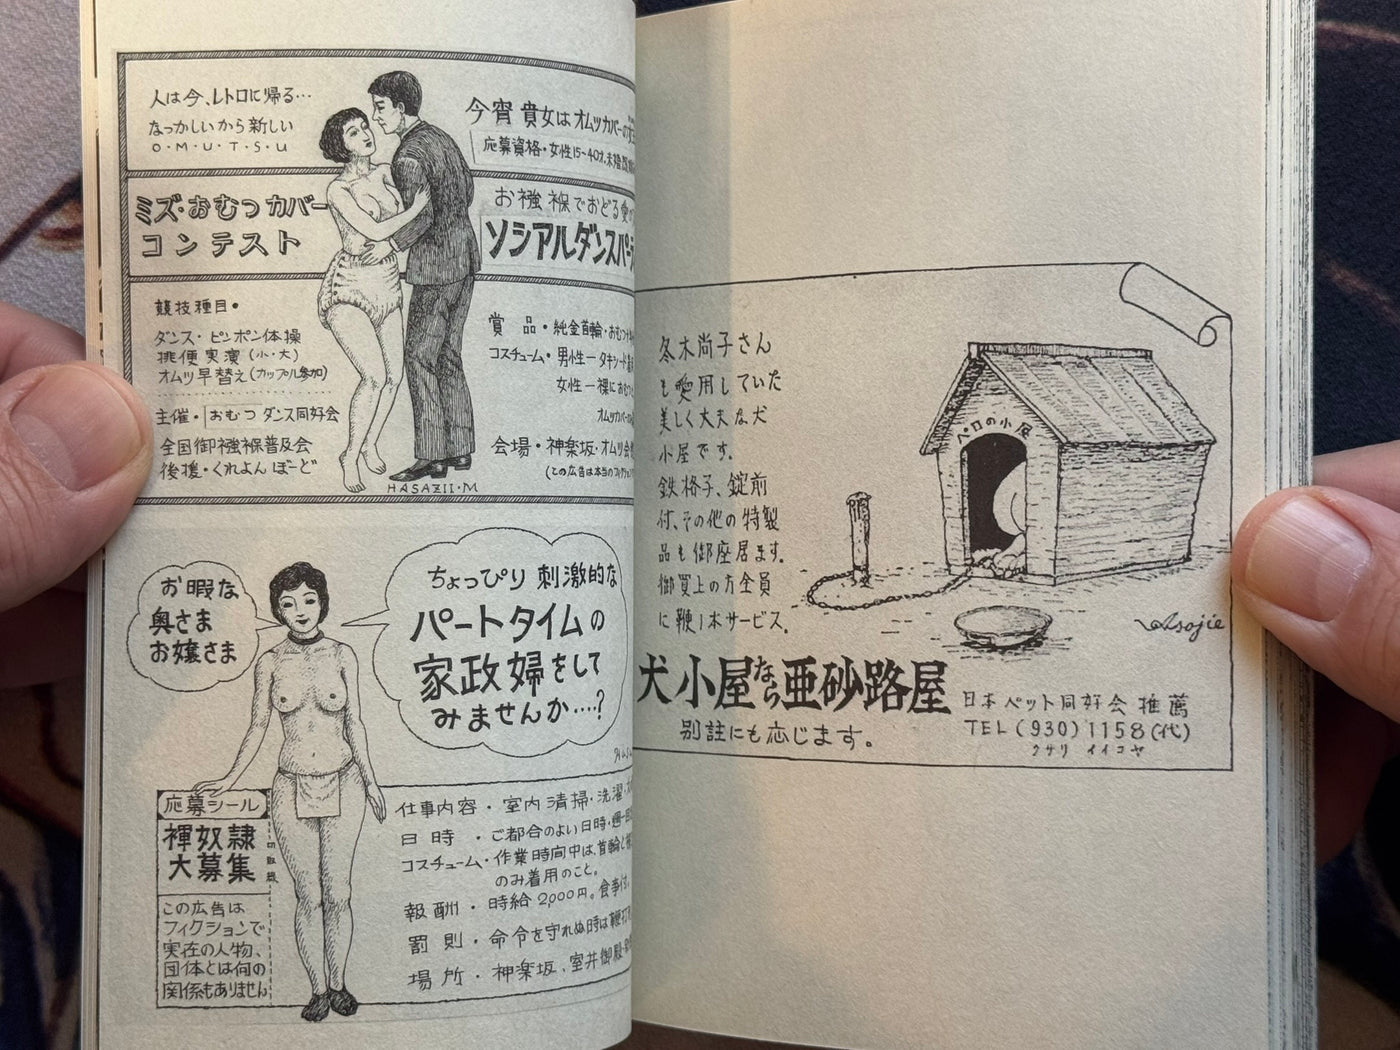 人は今、レトロに帰る…
なつかしいから新しい
O・M・U・T・S・U
今宵 貴女は オムツカバーの
応募資格・女性15~40才、未婚
ミズ・おむつカバー
コンテスト
お襁褓でおどる
ソシアルダンスパー
競技種目・
ダンス・ピンポン体操
排便実演(小・大)
オムツ早替え(カップル参加)
主催・おむつ ダンス同好会
全国御襁褓普及会
後援・くれよんぼーど
賞 品・純金首輪・おむつ
コスチューム・男性ータキシード
女性ー裸におむつ
オムツカバー
会場・神楽坂・オムツ会
(この広告は本当のフィクション
HASAZII・M
お暇な
奥さま
お嬢さま
ちょっぴり 刺激的な
パートタイムの
家政婦をして
みませんか‥‥?
応募シール
褌奴隷
大募集
切取線
この広告は
フィクションで
実在の人物、
団体とは何の
関係もありません
仕事内容・室内清掃・洗濯・
日 時 ・ご都合のよい日時・週一回
コスチューム・作業時間中は、首輪と
のみ着用のこと。
報 酬・時給2000円。食事付、
罰 則・命令を守れぬ時は鞭打
場 所・神楽坂、室井御殿
冬木尚子さん
も愛用していた
美しく丈夫な犬
小屋です。
鉄格子、錠前
付、その他の特製
品も御座居ます。
御買上の方全員
に鞭1本サービス。
ペロの小屋
Asojie
犬小屋なら亜砂路屋
別註にも応じます。
日本ペット同好会推薦
TEL(930)1158(代)
クサリ イイコヤ